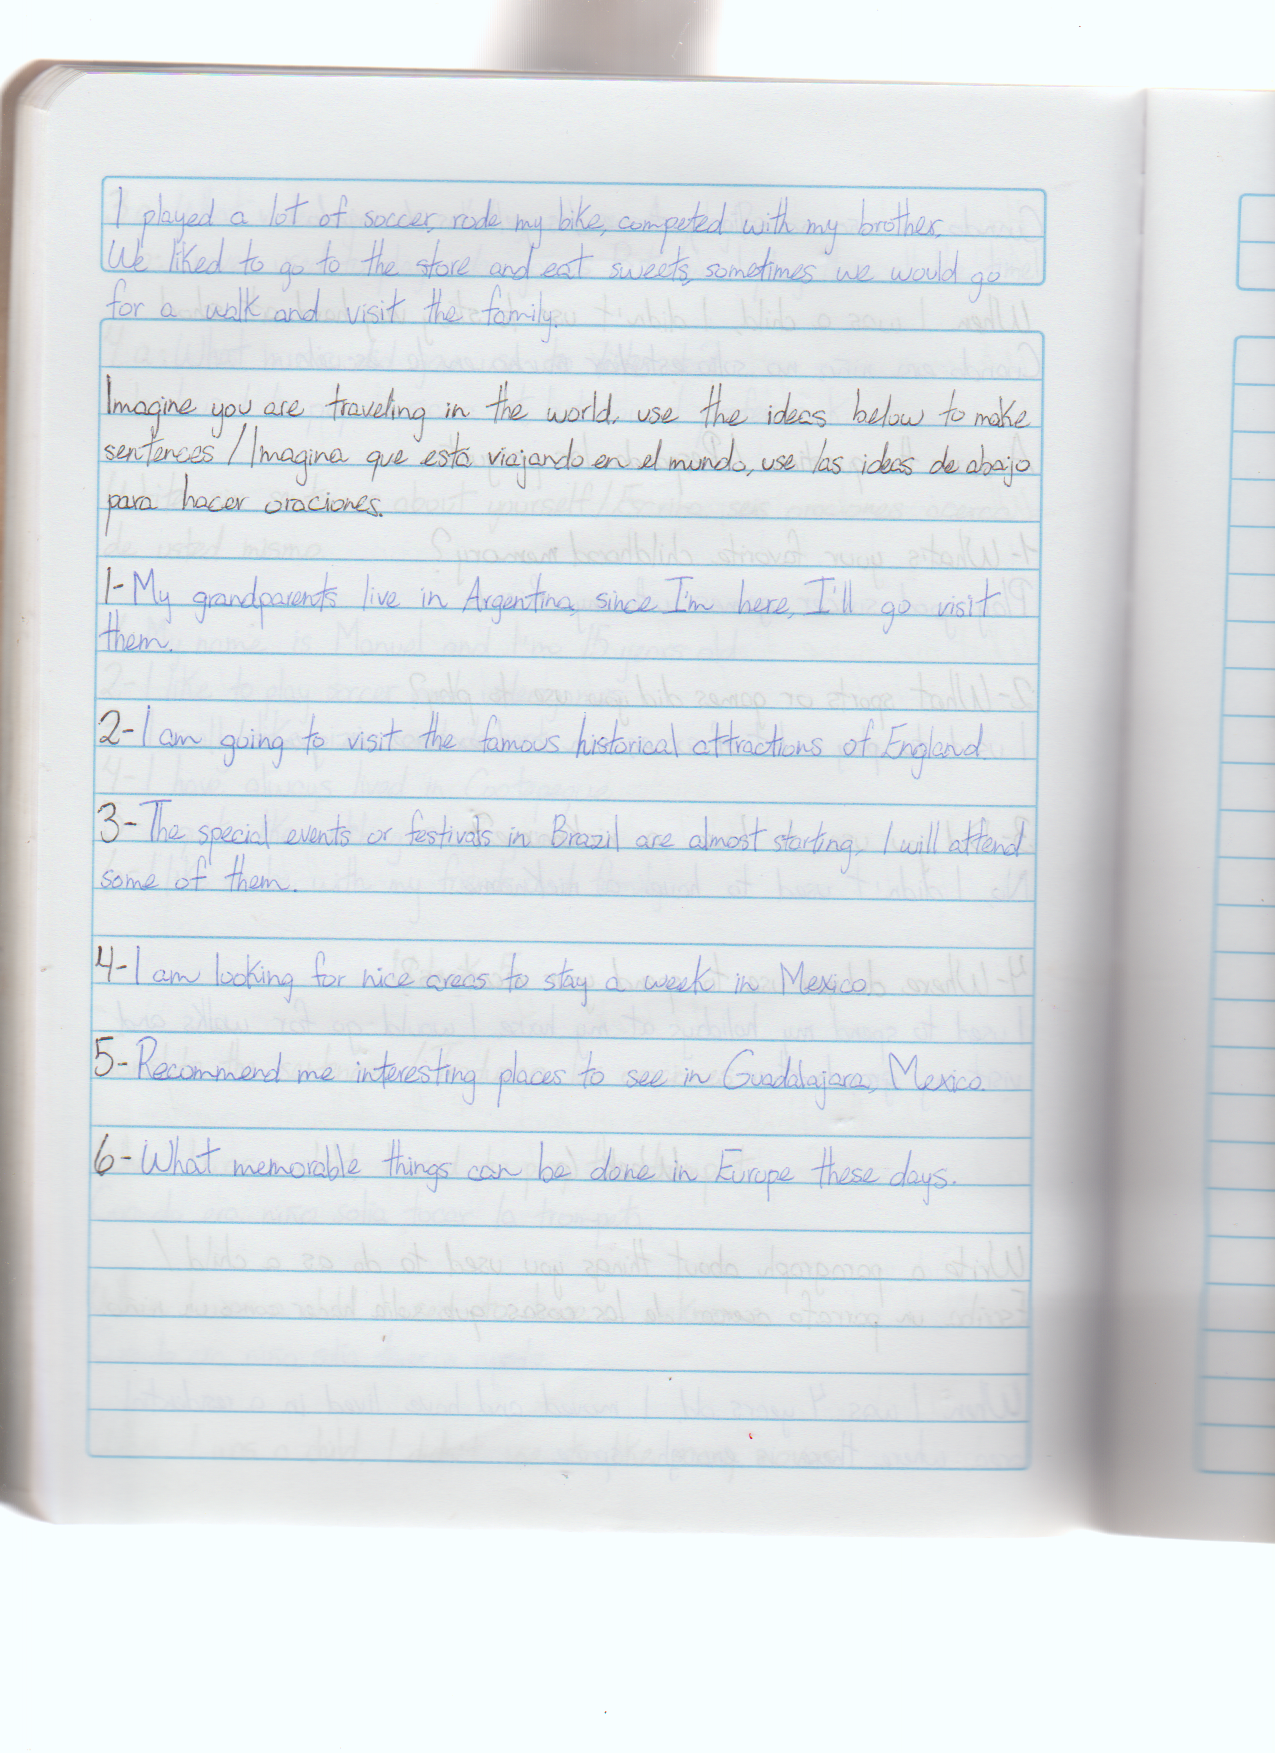 I played a lot of soccer, rode my bike, competed with my brother.
We liked to go to the store and eat sweets, sometimes we would go
for a walk and visit the family.
Imagine you are traveling in the world. use the ideas below to make
sentences / Imagina que está viajando en el mundo, use las ideas de abajo
para hacer oraciones.
1- My grandparents live in Argentina, since I'm here, I'll go visit
them.
2- I am going to visit the famous historical attractions of England.
3- The special events or festivals in Brazil are almost starting, I will attend
some of them.
4- I am looking for nice areas to stay a week in Mexico
5- Recommend me interesting places to see in Guadalajara, Mexico.
6- What memorable things can be done in Europe these days.